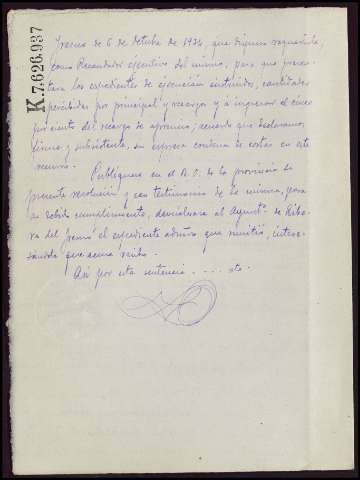 K.7.626.937
Fresno de 6 de Octubre de 1934, que dispuso requerirle,
como Recaudador ejecutivo del mismo, para que presen-
tara los expedientes de ejecución instruidos, cantidades
percibidas por principal y recargo y á ingresar el cinco
por ciento del recargo de apremio; acuerdo que declaramos
firme y subsistente, sin expresa condena de costas en este
recurso.
Publíquese en el B.O. de la provincia la
presente resolución y con testimonio de la misma, para
su debido cumplimiento, devuélvase al Ayuntº de
del Fresno el expediente admtvo que remitió, intere-
sándole que acuse recibo.
Así por esta sentencia ..... etc.